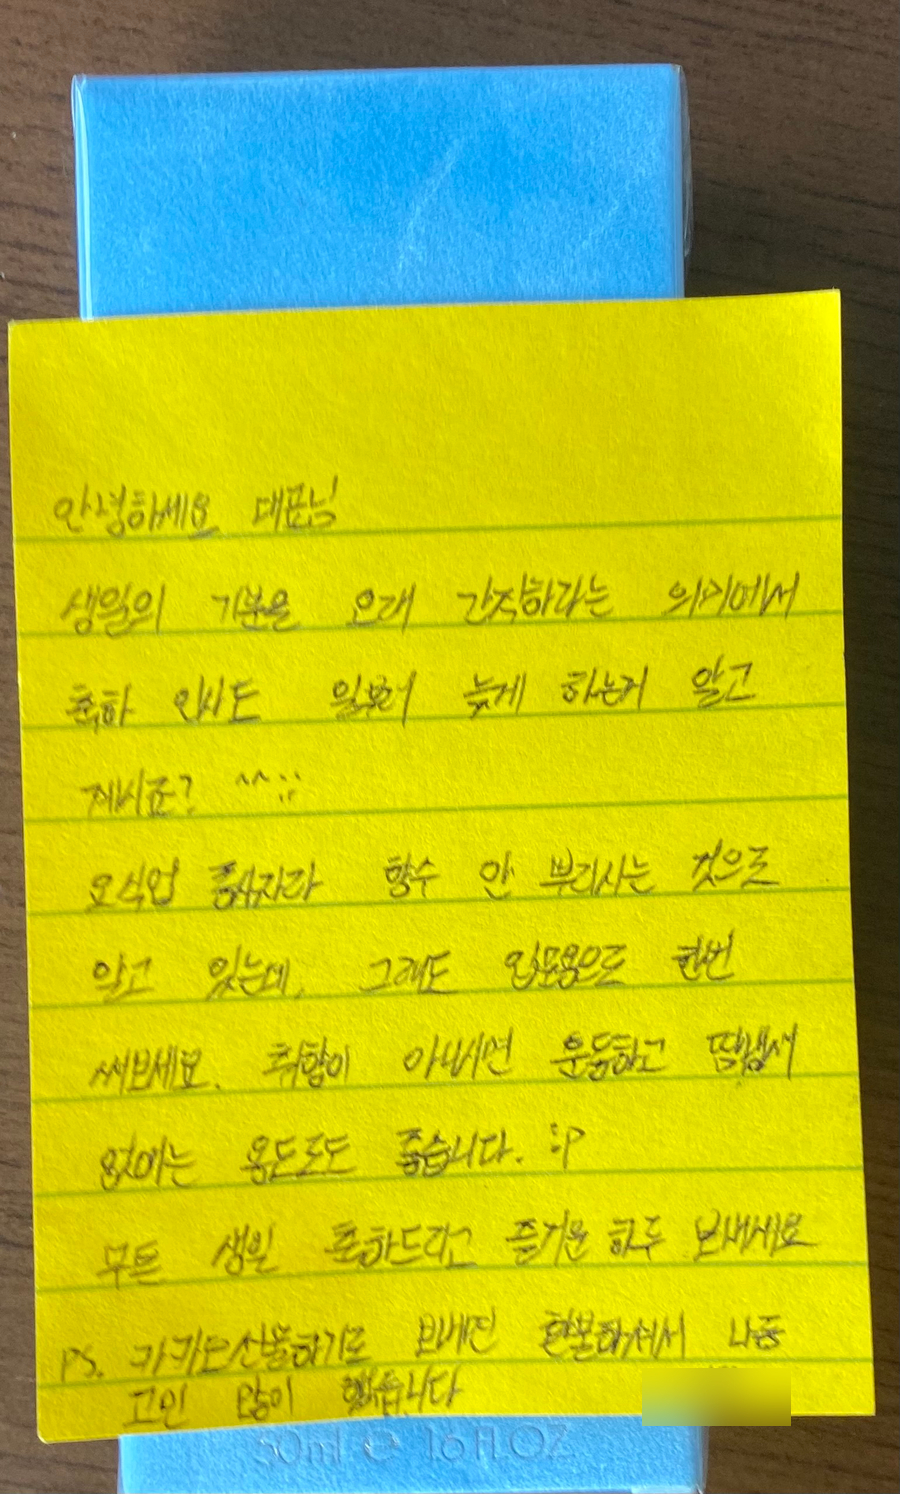 안녕하세요 대표님
생일의 기분을 오래 간직하라는 의미에서
축하 인사도 일부러 늦게 하는거 알고
계시죠? ^^;;
요식업 종사자라 향수 안 뿌리시는 것으로
알고 있는데, 그래도 입문용으로 한번
써보세요. 취향이 아니시면 운동하고 땀냄새
없애는 용도로도 좋습니다. :P
무튼 생일 축하드리고 즐거운 하루 보내세요
PS. 카카오선물하기로 보내면 환불하셔서 나름
고민 많이 했습니다
50ml e 1.6 FL.OZ